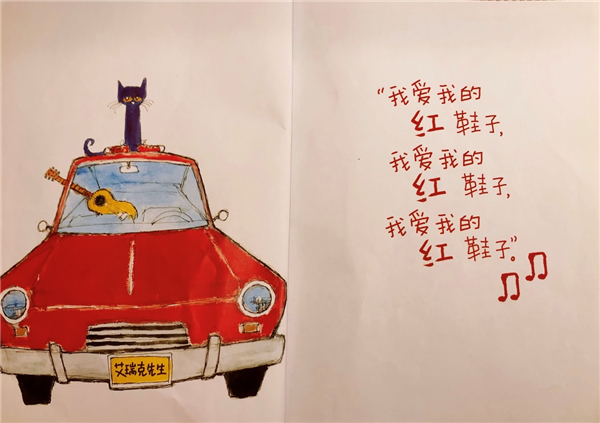 艾瑞克先生
“我爱我的
红 鞋子,
我爱我的
红 鞋子,
我爱我的
红 鞋子”。